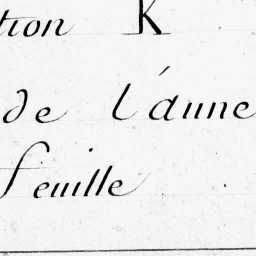 tion K
de l'aune
feuille